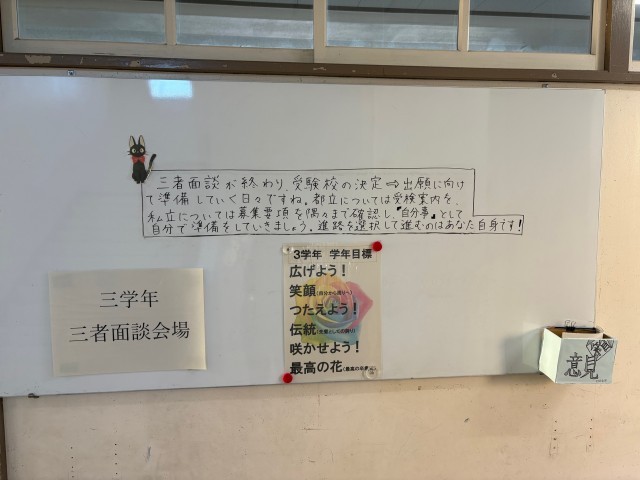 三者面談が終わり、受験校の決定⇒出願に向け
て準備していく日々ですね。都立については受検案内を、
私立については募集要項を隅々まで確認し、"自分事"として
自分で準備をしていきましょう。進路を選択して進むのはあなた自身です!
3学年 学年目標
広げよう!
笑顔(自分から周りへ)
つたえよう!
伝統
咲かせよう!
最高の花
三学年
三者面談会場
意見